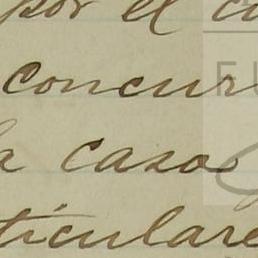 por el c
concur
la casos
ticulare